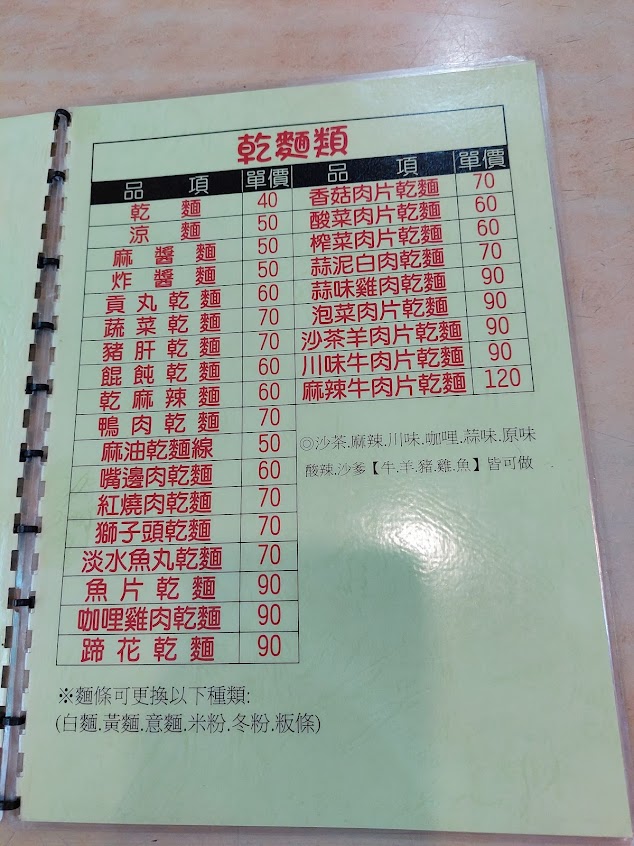 乾麵類
品項 單價
乾麵 40
涼麵 50
麻醬麵 50
炸醬麵 50
貢丸乾麵 60
蔬菜乾麵 70
豬肝乾麵 70
餛飩乾麵 60
乾麻辣麵 60
鴨肉乾麵 70
麻油乾麵線 50
嘴邊肉乾麵 60
紅燒肉乾麵 70
獅子頭乾麵 70
淡水魚丸乾麵 70
魚片乾麵 90
咖哩雞肉乾麵 90
蹄花乾麵 90
品項 單價
香菇肉片乾麵 70
酸菜肉片乾麵 60
榨菜肉片乾麵 60
蒜泥白肉乾麵 70
蒜味雞肉乾麵 90
泡菜肉片乾麵 90
沙茶羊肉片乾麵 90
川味牛肉片乾麵 90
麻辣牛肉片乾麵 120
◎沙茶.麻辣.川味.咖哩.蒜味.原味
酸辣.沙爹【牛.羊.豬.雞.魚】皆可做
※麵條可更換以下種類:
(白麵.黃麵.意麵.米粉.冬粉.粄條)